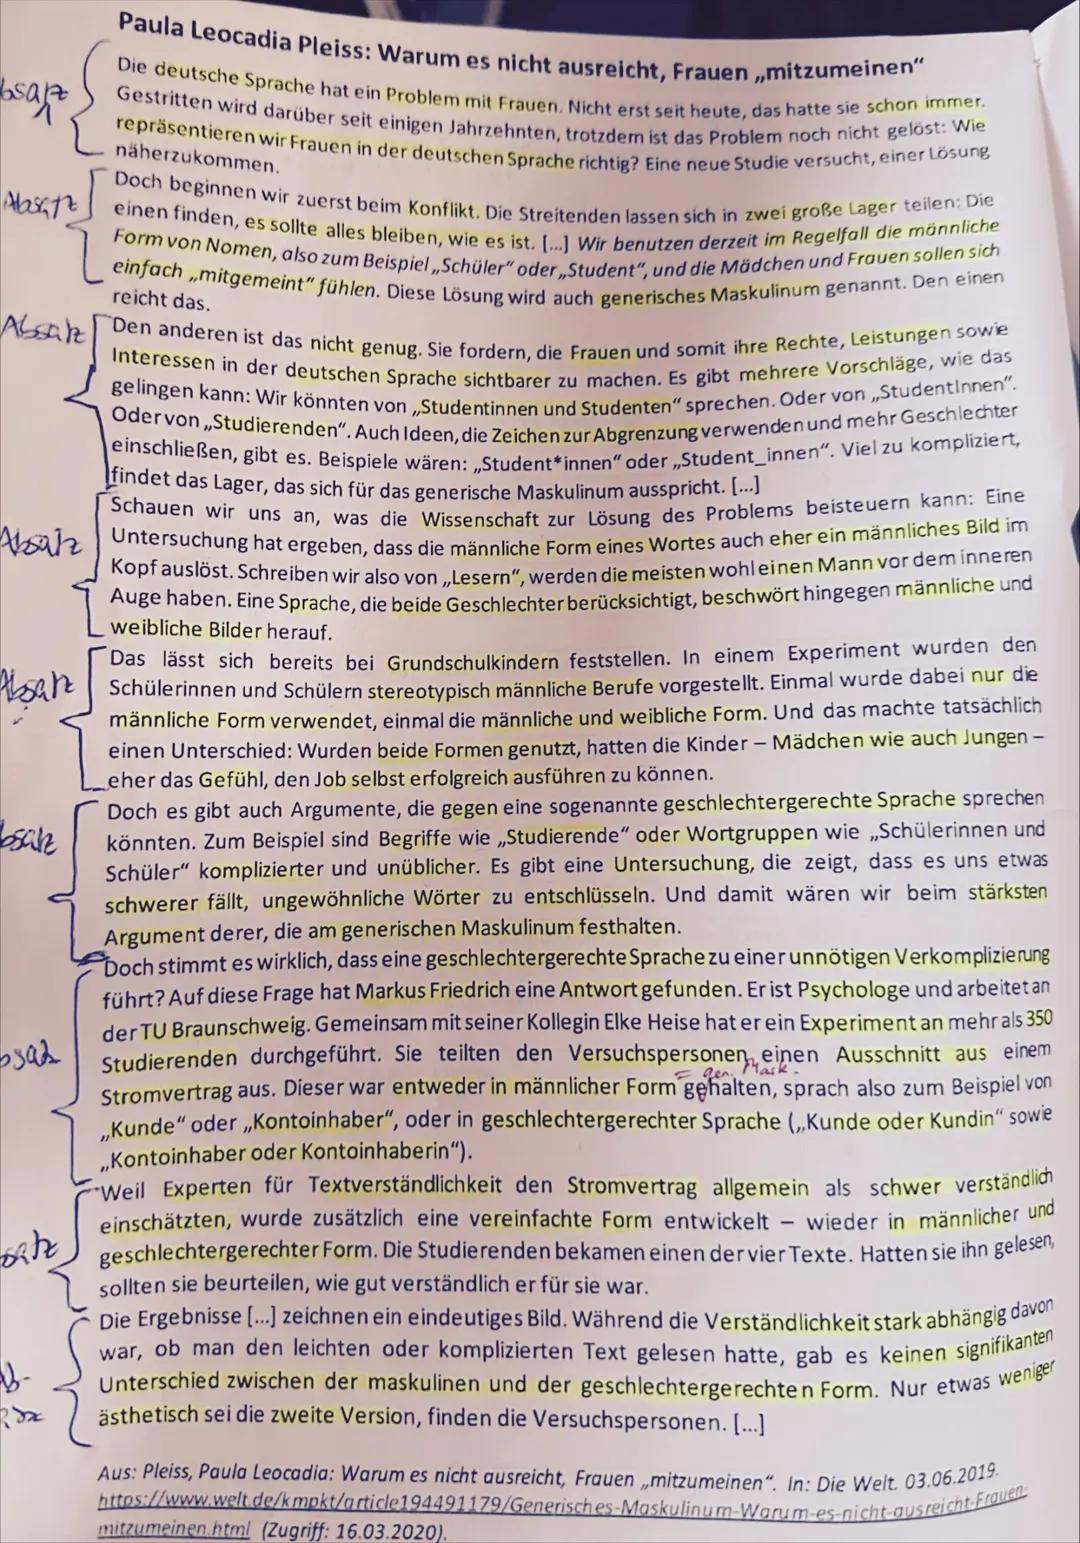 Paula Leocadia Pleiss: Warum es nicht ausreicht, Frauen „mitzumeinen“
Absatz
Die deutsche Sprache hat ein Problem mit Frauen. Nicht erst seit heute, das hatte sie schon immer.
Gestritten wird darüber seit einigen Jahrzehnten, trotzdem ist das Problem noch nicht gelöst: Wie
repräsentieren wir Frauen in der deutschen Sprache richtig? Eine neue Studie versucht, einer Lösung
näherzukommen.
Absatz
Doch beginnen wir zuerst beim Konflikt. Die Streitenden lassen sich in zwei große Lager teilen: Die
einen finden, es sollte alles bleiben, wie es ist. [...] Wir benutzen derzeit im Regelfall die männliche
Form von Nomen, also zum Beispiel „Schüler“ oder „Student“, und die Mädchen und Frauen sollen sich
einfach „mitgemeint“ fühlen. Diese Lösung wird auch generisches Maskulinum genannt. Den einen
reicht das.
Absatz
Den anderen ist das nicht genug. Sie fordern, die Frauen und somit ihre Rechte, Leistungen sowie
Interessen in der deutschen Sprache sichtbarer zu machen. Es gibt mehrere Vorschläge, wie das
gelingen kann: Wir könnten von „Studentinnen und Studenten“ sprechen. Oder von „StudentInnen“.
Oder von „Studierenden“. Auch Ideen, die Zeichen zur Abgrenzung verwenden und mehr Geschlechter
einschließen, gibt es. Beispiele wären: „Student*innen“ oder „Student_innen“. Viel zu kompliziert,
findet das Lager, das sich für das generische Maskulinum ausspricht. [...]
Absatz
Schauen wir uns an, was die Wissenschaft zur Lösung des Problems beisteuern kann: Eine
Untersuchung hat ergeben, dass die männliche Form eines Wortes auch eher ein männliches Bild im
Kopf auslöst. Schreiben wir also von „Lesern“, werden die meisten wohl einen Mann vor dem inneren
Auge haben. Eine Sprache, die beide Geschlechter berücksichtigt, beschwört hingegen männliche und
weibliche Bilder herauf.
Absatz
Das lässt sich bereits bei Grundschulkindern feststellen. In einem Experiment wurden den
Schülerinnen und Schülern stereotypisch männliche Berufe vorgestellt. Einmal wurde dabei nur die
männliche Form verwendet, einmal die männliche und weibliche Form. Und das machte tatsächlich
einen Unterschied: Wurden beide Formen genutzt, hatten die Kinder – Mädchen wie auch Jungen –
eher das Gefühl, den Job selbst erfolgreich ausführen zu können.
Absatz
Doch es gibt auch Argumente, die gegen eine sogenannte geschlechtergerechte Sprache sprechen
könnten. Zum Beispiel sind Begriffe wie „Studierende“ oder Wortgruppen wie „Schülerinnen und
Schüler“ komplizierter und unüblicher. Es gibt eine Untersuchung, die zeigt, dass es uns etwas
schwerer fällt, ungewöhnliche Wörter zu entschlüsseln. Und damit wären wir beim stärksten
Argument derer, die am generischen Maskulinum festhalten.
Doch stimmt es wirklich, dass eine geschlechtergerechte Sprache zu einer unnötigen Verkomplizierung
führt? Auf diese Frage hat Markus Friedrich eine Antwort gefunden. Er ist Psychologe und arbeitet an
der TU Braunschweig. Gemeinsam mit seiner Kollegin Elke Heise hat er ein Experiment an mehr als 350
Studierenden durchgeführt. Sie teilten den Versuchspersonen einen Ausschnitt aus einem
= gen. Mask.
Stromvertrag aus. Dieser war entweder in männlicher Form gehalten, sprach also zum Beispiel von
„Kunde“ oder „Kontoinhaber“, oder in geschlechtergerechter Sprache („Kunde oder Kundin“ sowie
„Kontoinhaber oder Kontoinhaberin“).
Weil Experten für Textverständlichkeit den Stromvertrag allgemein als schwer verständlich
einschätzten, wurde zusätzlich eine vereinfachte Form entwickelt – wieder in männlicher und
geschlechtergerechter Form. Die Studierenden bekamen einen der vier Texte. Hatten sie ihn gelesen,
sollten sie beurteilen, wie gut verständlich er für sie war.
Die Ergebnisse [...] zeichnen ein eindeutiges Bild. Während die Verständlichkeit stark abhängig davon
war, ob man den leichten oder komplizierten Text gelesen hatte, gab es keinen signifikanten
Unterschied zwischen der maskulinen und der geschlechtergerechten Form. Nur etwas weniger
ästhetisch sei die zweite Version, finden die Versuchspersonen. [...]
Aus: Pleiss, Paula Leocadia: Warum es nicht ausreicht, Frauen „mitzumeinen“. In: Die Welt. 03.06.2019.
https://www.welt.de/kmpkt/article194491179/Generisches-Maskulinum-Warum-es-nicht-ausreicht-Frauen-
mitzumeinen.html (Zugriff: 16.03.2020).